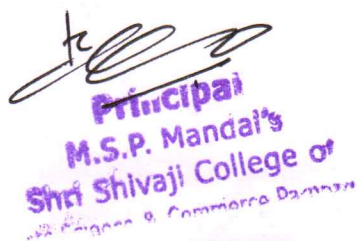 Principal
M.S.P. Mandal's
Shri Shivaji College of
& Commerce